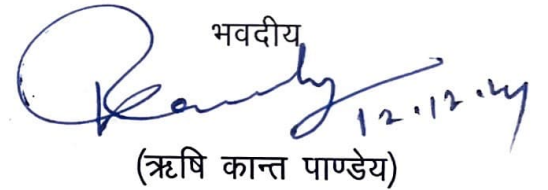 भवदीय
12.12.24
(ऋषि कान्त पाण्डेय)